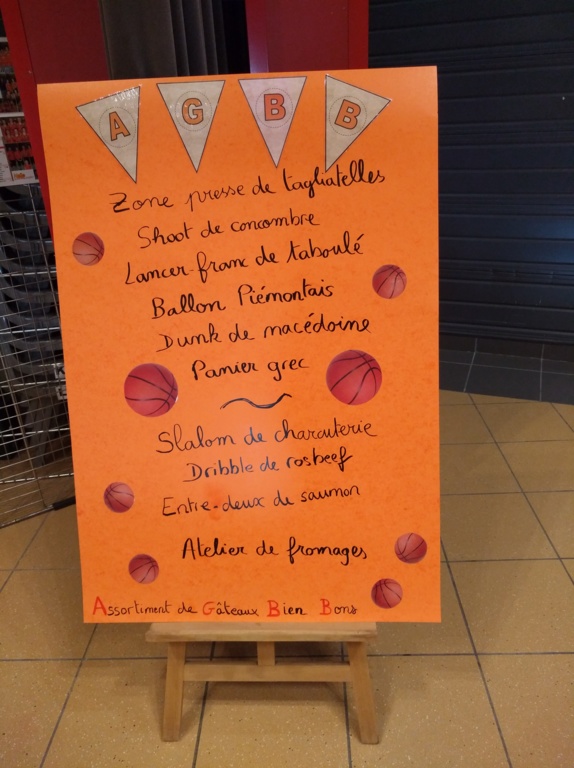 A G B B
Zone presse de tagliatelles
Shoot de concombre
Lancer-franc de taboulé
Ballon Piémontais
Dunk de macédoine
Panier grec
Slalom de charcuterie
Dribble de rosbeef
Entre-deux de saumon
Atelier de fromages
Assortiment de Gâteaux Bien Bons